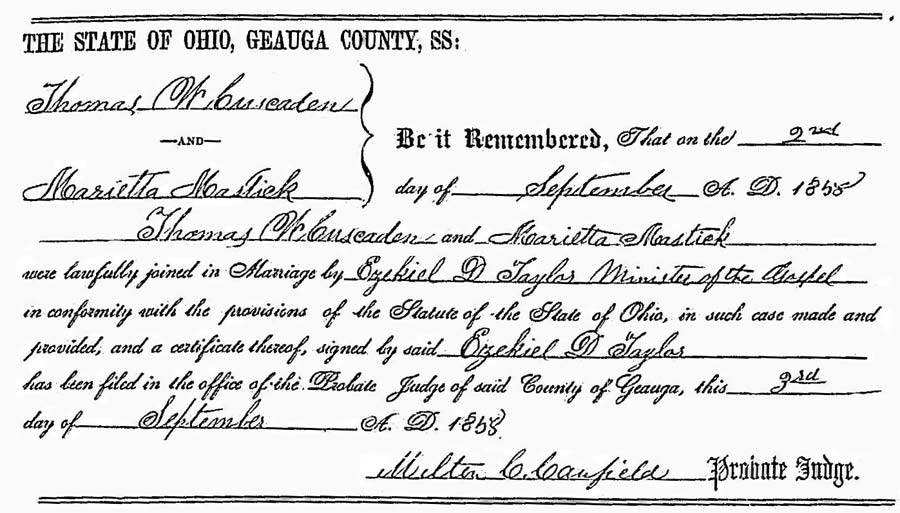 THE STATE OF OHIO, GEAUGA COUNTY, SS:
Thomas W Cuscaden
—AND—
Marietta Mastick
Be it Remembered, That on the 2nd
day of September A. D. 1858
Thomas W Cuscaden and Marietta Mastick
were lawfully joined in Marriage by Ezekiel D Taylor Minister of the Gospel
in conformity with the provisions of the Statute of the State of Ohio, in such case made and
provided, and a certificate thereof, signed by said Ezekiel D Taylor
has been filed in the office of the Probate Judge of said County of Geauga, this 3rd
day of September A. D. 1858
Milton C. Canfield Probate Judge.